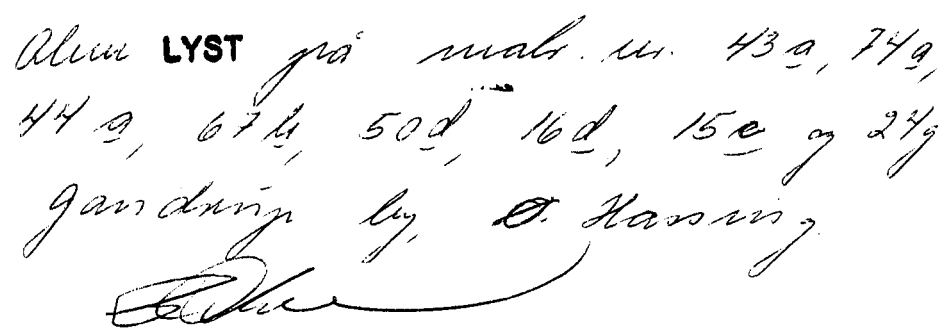 Alene LYST på matr. nr. 43a, 74a,
44a, 67h, 50d, 16d, 15e og 24g
Gandrup by, Ø. Hassing